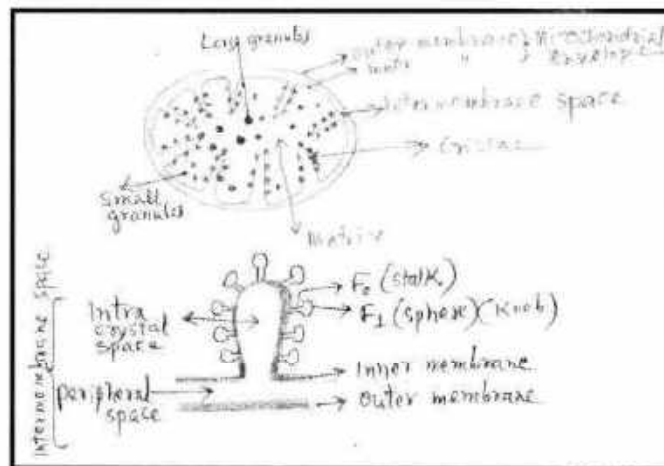 Larg granules
outer membrane } Mitochondrial
inner " } envelope
intermembrane space
Cristae
Small
granules
Matrix
intermembrane space
Intra
crystal
space
F₀ (stalk)
F₁ (sphere) (Knob)
Inner membrane
peripheral
space
outer membrane